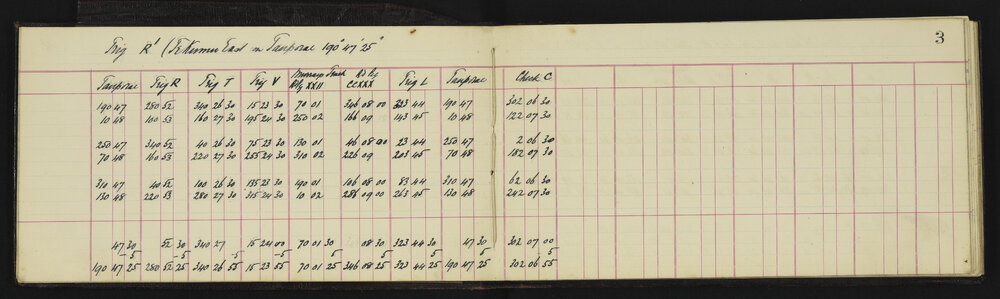 3
Trig R' ( on 190° 47' 25"
Trig R Trig T Trig V Trig L Check C
XXII CCXXX
190 47 280 52 340 26 30 15 23 30 70 01 346 08 00 323 44 190 47 302 06 30
10 48 100 53 160 27 30 195 24 30 250 02 166 09 143 45 10 48 122 07 30
250 47 340 52 40 26 30 75 23 30 130 01 46 08 00 23 44 250 47 2 06 30
70 48 160 53 220 27 30 255 24 30 310 02 226 09 203 45 70 48 182 07 30
310 47 40 52 100 26 30 135 23 30 190 01 106 08 00 83 44 310 47 62 06 30
130 48 220 53 280 27 30 315 24 30 10 02 286 09 00 263 45 130 48 242 07 30
47 30 52 30 340 27 15 24 00 70 01 30 08 30 323 44 30 47 30 302 07 00
-5 -5 -5 -5 5 5 5 5 5
190 47 25 280 52 25 340 26 55 15 23 55 70 01 25 346 08 25 323 44 25 190 47 25 302 06 55